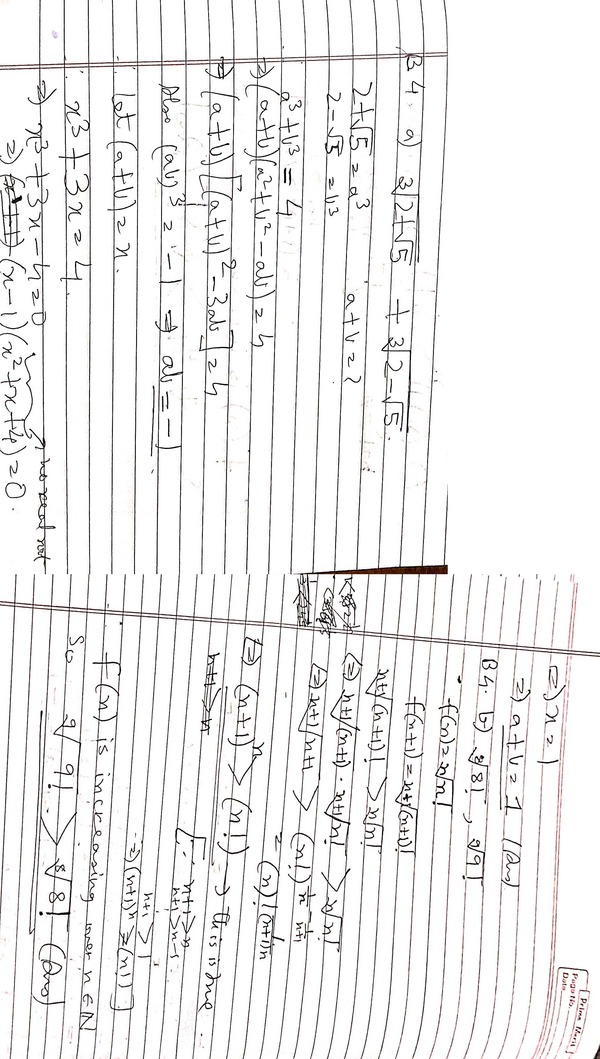 B4. a) ∛(2+√5) + ∛(2-√5).
2+√5 = a³ a+b = ?
2-√5 = b³
a³+b³ = 4
⇒ (a+b)(a²+b²-ab) = 4
⇒ (a+b)[(a+b)²-3ab] = 4
Also (ab)³ = -1 ⇒ ab = -1
Let (a+b) = x.
∴ x³+3x = 4.
⇒ x³+3x-4=0 → no real root
⇒ (x-1)(x²+x+4)=0.
Prime Merit
Page No.
Date
⇒ x = 1
⇒ a+b = 1 (Ans)
B4. b) ⁸√8! , ⁹√9!
f(n) = ⁿ√n!
f(n+1) = ⁿ⁺¹√(n+1)!
ⁿ⁺¹√(n+1)! > ⁿ√n!
(⇒) ⁿ⁺¹√(n+1) · ⁿ⁺¹√n! > ⁿ√n!
(⇒) ⁿ⁺¹√n+1 > (n!)^(1/n - 1/(n+1))
= (n)!^(1/(n+1)n)
(⇒) (n+1)ⁿ > (n!) → This is true
n+1 > n
[∵ n+1>n
n+1>n-1
⋮
n+1 > 1
⇒ (n+1)ⁿ > (n!)]
∴ f(n) is increasing over n ∈ N
So ⁹√9! > ⁸√8! (Ans)